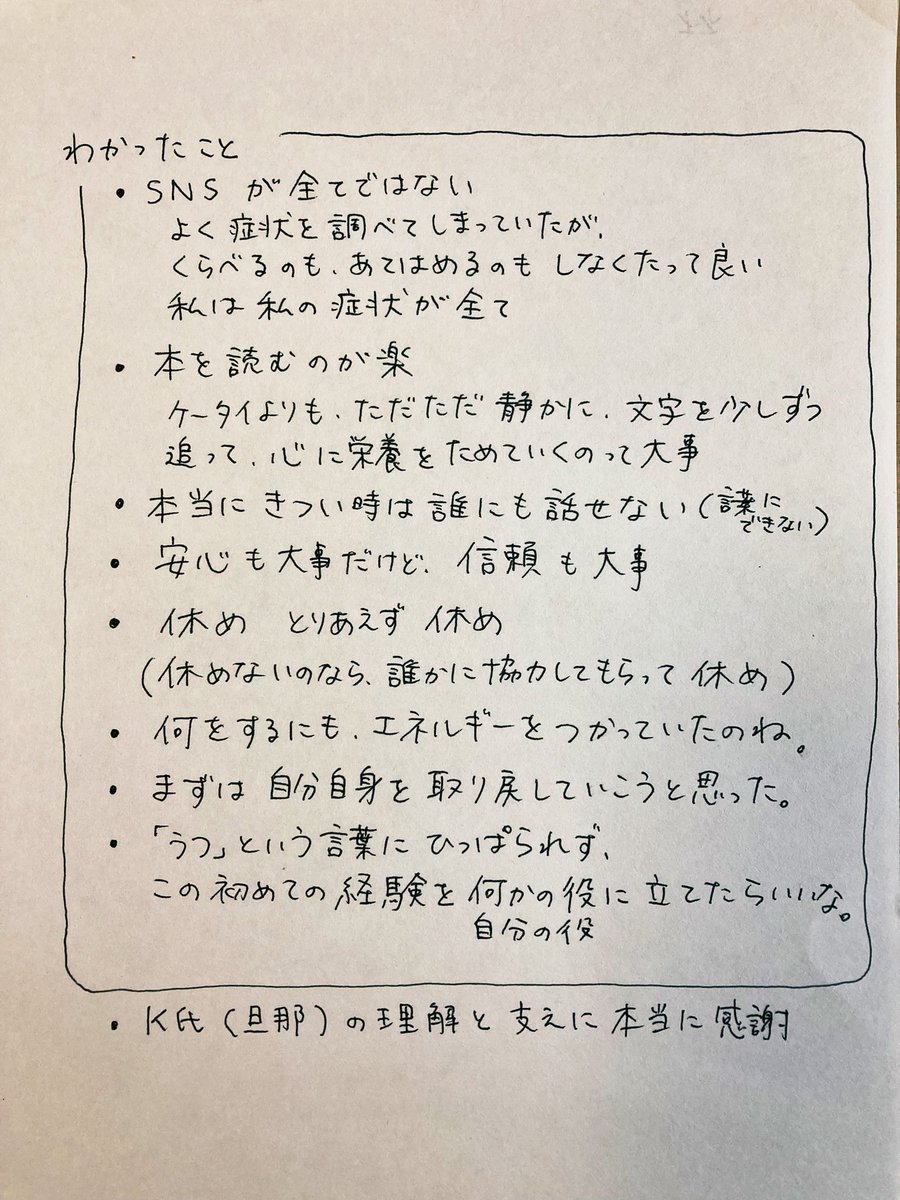 わかったこと
・SNSが全てではない
よく症状を調べてしまっていたが、
くらべるのも、あてはめるのもしなくたって良い
私は私の症状が全て
・本を読むのが楽
ケータイよりも、ただただ静かに、文字を少しずつ
追って、心に栄養をためていくのって大事
・本当にきつい時は誰にも話せない(言葉にできない)
・安心も大事だけど、信頼も大事
・休め とりあえず休め
(休めないのなら、誰かに協力してもらって休め)
・何をするにも、エネルギーをつかっていたのね。
・まずは自分自身を取り戻していこうと思った。
・「うつ」という言葉にひっぱられず、
この初めての経験を何かの役に立てたらいいな。
自分の役
・K氏(旦那)の理解と支えに本当に感謝